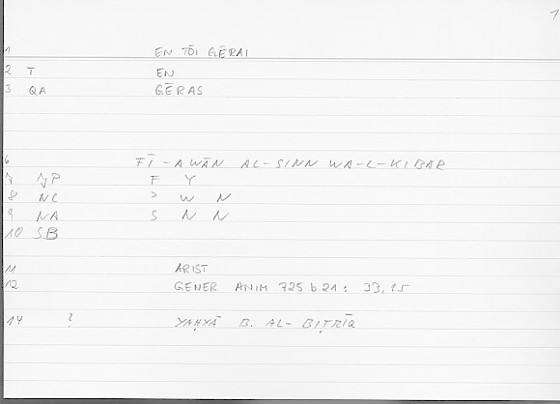 1
1 EN TŌI GĒRAI
2 T EN
3 QA GĒRAS
6 FĪ-AWĀN AL-SINN WA-L-KIBAR
7 NP F Y
8 NC ʾ W N
9 NA S N N
10 SB
11 ARIST
12 GENER ANIM 725 b 21 : 33,15
14 ? YAḤYĀ B. AL-BIṬRĪQ